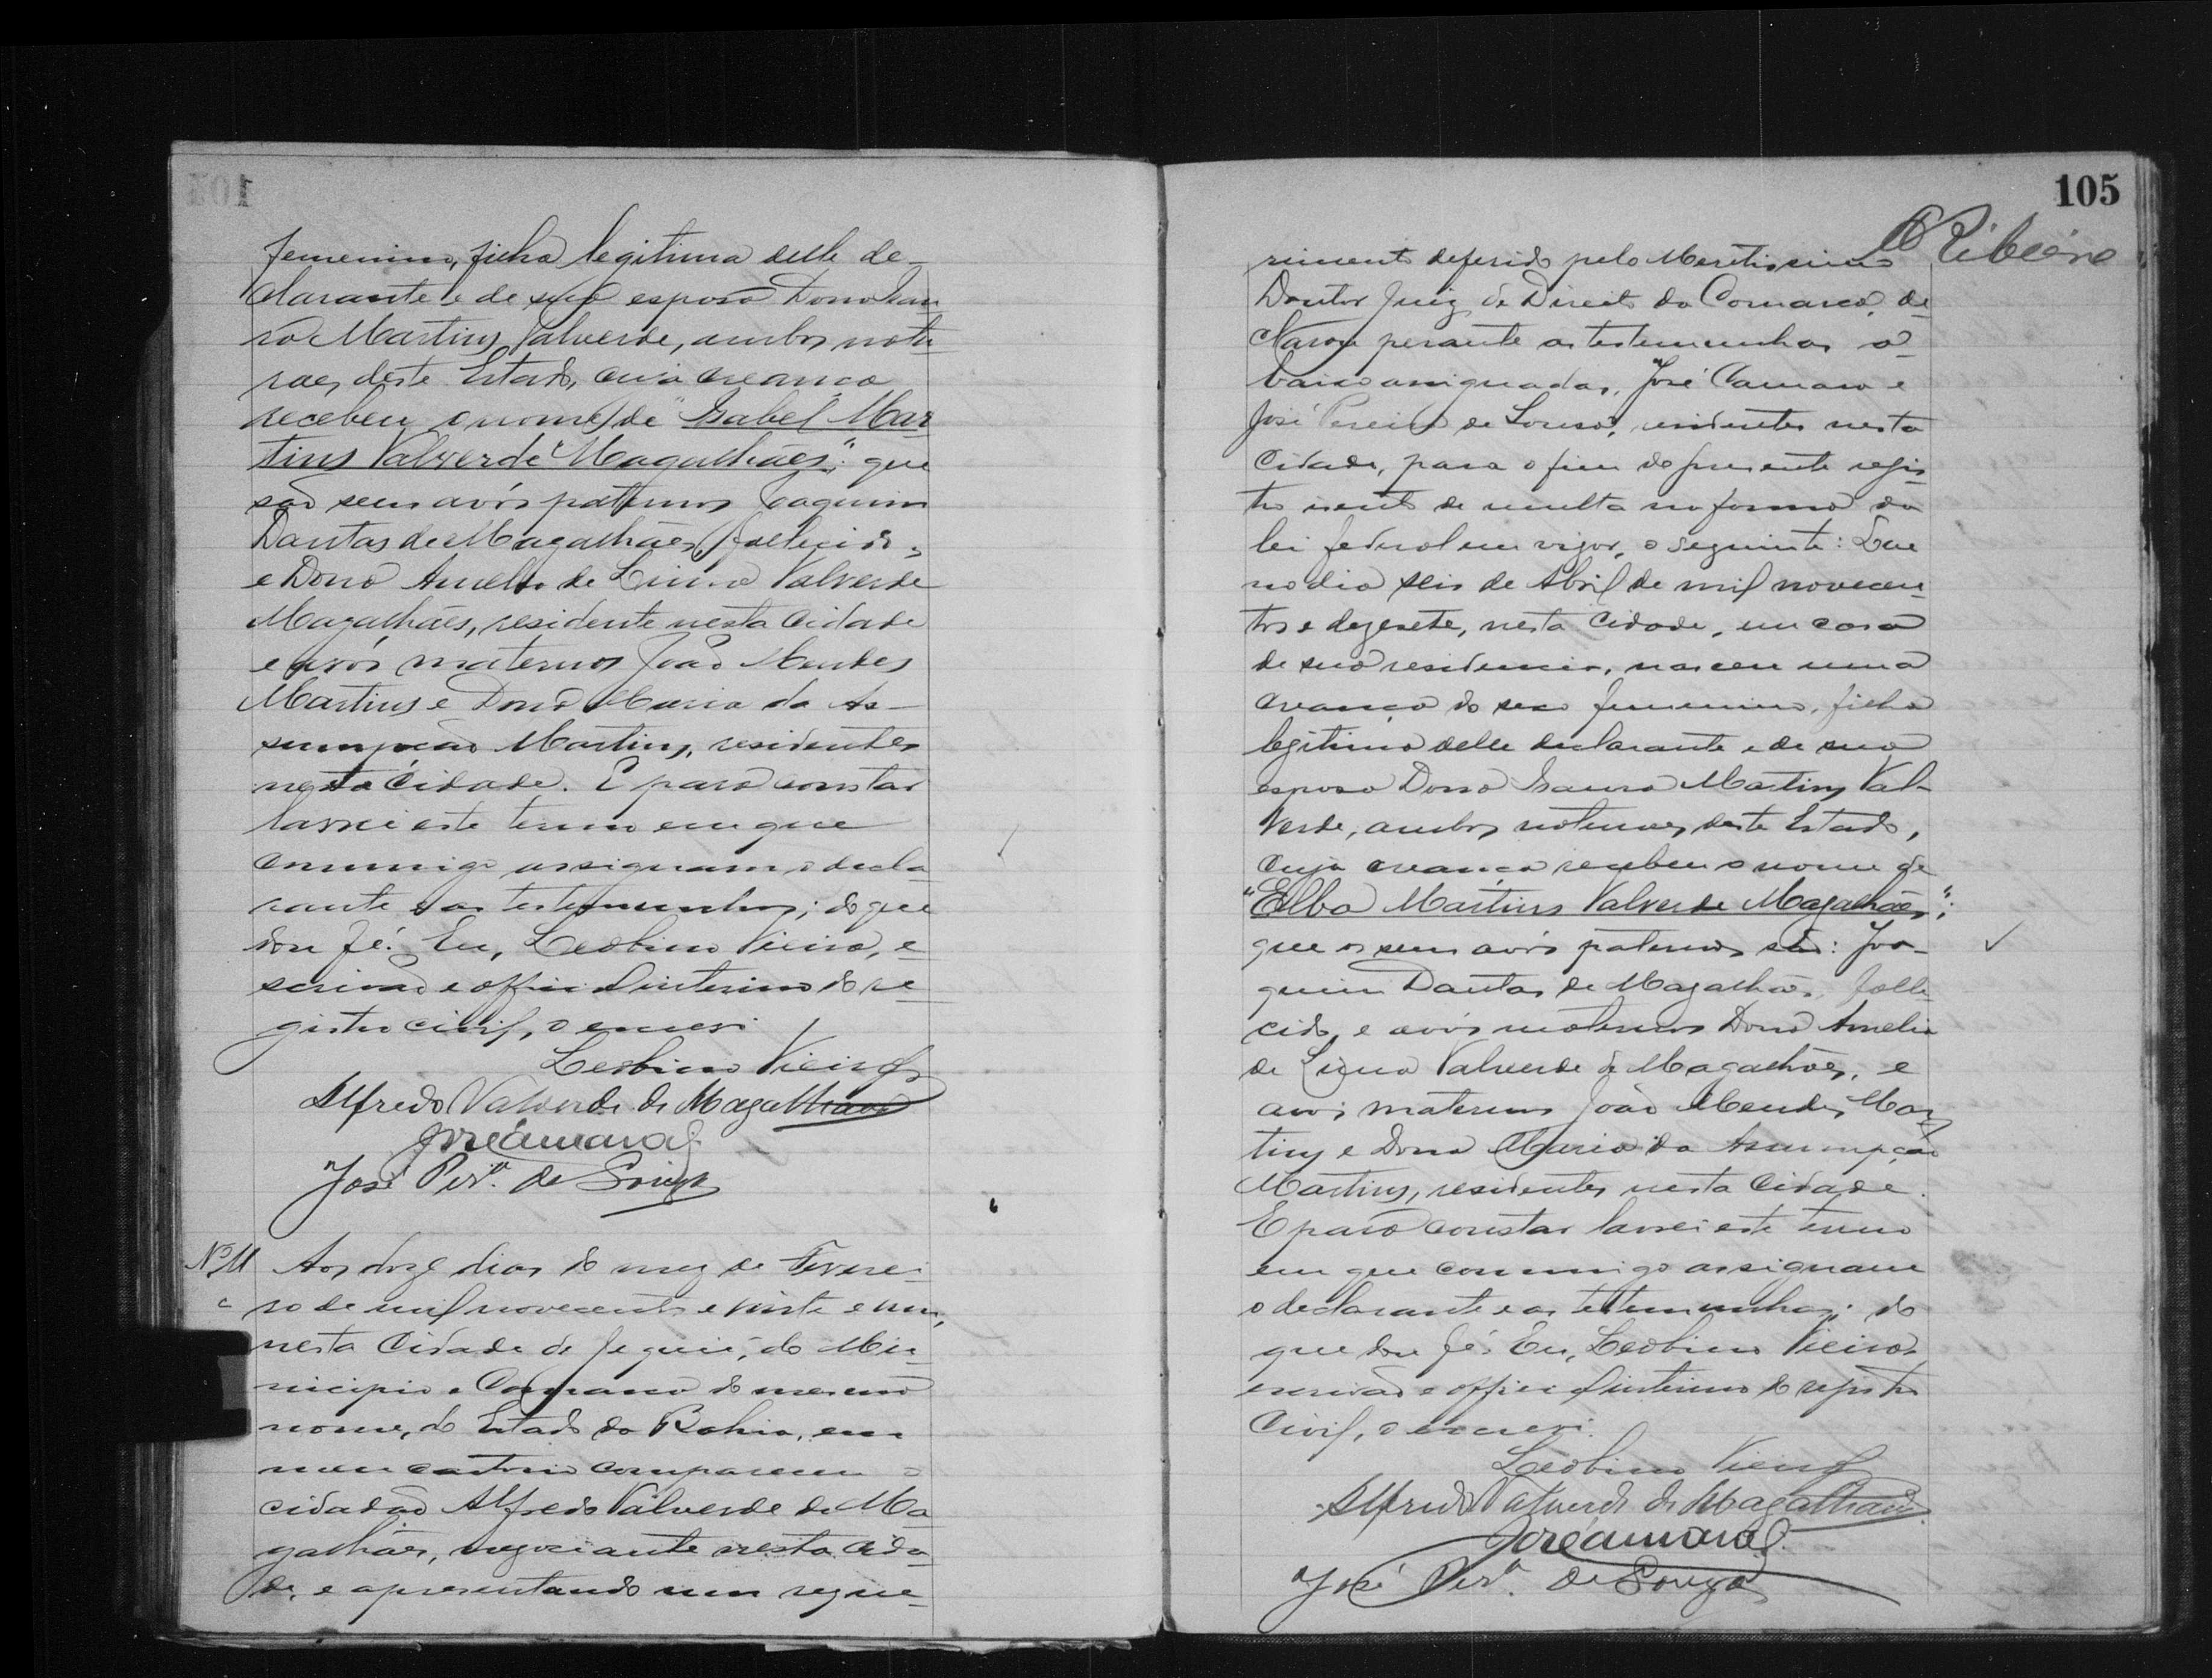 femenino, filha legitima delle de-
clarante e de sua esposa Dona Isau
ra Martins Valverde, ambos natu
raes deste Estado, cuja creança
recebeu o nome de "Isabel Mar
tins Valverde Magalhães"; que
são seus avós paternos Joaquim
Dantas de Magalhães, fallecido,
e Dona Amelia de Lima Valverde
Magalhães, residente nesta Cidade
e avós maternos João Mendes
Martins e Dona Maria da As-
sumpção Martins, residentes
nesta Cidade. E para constar
lavrei este termo em que
commigo assignam o decla
rante e as testemunhas; do que
dou fé. Eu, Leobino Vieira, e
scrivão e official interino do re
gistro civil, o escrevi
Leobino Vieira
Alfredo Valverde de Magalhães
José Amaral
José Perª. de Souza
Nº 11 Aos doze dias do mez de Feverei
ro de mil novecentos e vinte e um,
nesta Cidade de Jequié, do Mu
nicipio e Comarca do mesmo
nome, do Estado da Bahia, em
meu cartorio compareceu o
cidadão Alfredo Valverde de Ma
galhães, negociante nesta cida
de, e apresentando um reque-
105
Ribeiro
rimento deferido pelo Meretissimo
Doutor Juiz de Direito da Comarca, de
clarou perante as testemunhas a
baixo assignadas, José Amaral e
José Pereira de Souza, residentes nesta
Cidade, para o fim do presente regis
tro isento de multa na forma da
lei federal em vigor, o seguinte: Que
no dia seis de Abril de mil novecen
tos e dezesete, nesta Cidade, em casa
de sua residencia, nasceu uma
creança do sexo femenino, filha
legitima delle declarante e de sua
esposa Dona Isaura Martins Val-
verde, ambos naturaes deste Estado,
cuja creança recebeu o nome de
"Elba Martins Valverde Magalhães";
que os seus avós paternos são: Joa-
quim Dantas de Magalhães, falle
cido, e avós maternos Dona Amelia
de Lima Valverde de Magalhães, e
avós maternos João Mendes Mar
tins e Dona Maria da Assumpção
Martins, residentes nesta Cidade.
E para constar lavrei este termo
em que commigo assignam
o declarante e as testemunhas; do
que dou fé. Eu, Leobino Vieira,
escrivão e official interino do registro
Civil, o escrevi.
Leobino Vieira
Alfredo Valverde de Magalhães
José Amaral
José Perª. de Souza